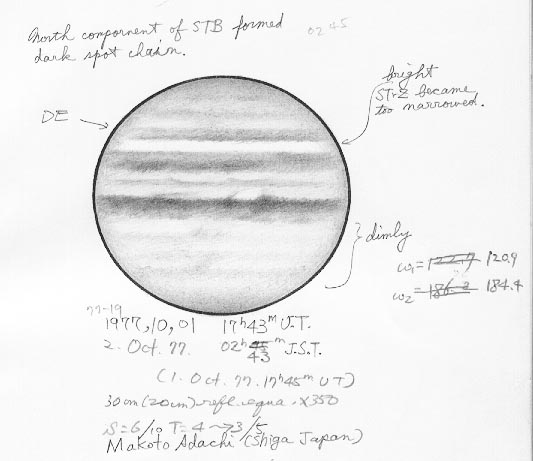 North component of STB formed
dark spot chain.
0245
bright
STrZ became
too narrowed.
DE
dimly
ω1=122.7 120.9
ω2=186.2 184.4
77-19
1977,10,01 17h43m U.T.
2. Oct. 77. 02h45m J.S.T.
43
(1. Oct. 77. 17h45m UT)
30cm(20cm) refl. equa. ×350
S=6/10 T=4→3/5
Makoto Adachi (Shiga Japan)